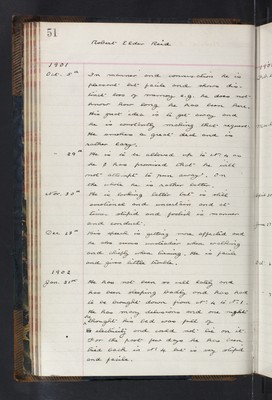 51
Robert Elder Reid
1901
Oct. 5th In manner and conversation he is
pleasant but facile and shows dis-
tinct loss of memory e.g. he does not
know how long he has been here.
His great idea is to get away and
he is constantly making that request.
He smokes a great deal and is
rather lazy.
" 29th He is to be allowed up to No 4 as
he has promised that he will
not attempt to run away. On
the whole he is rather better.
Nov. 30th He is looking better but is still
emotional and uncertain and at
times stupid and foolish in manner
and conduct.
Dec. 28th His speech is getting more affected and
he is more unsteady when walking
and
He is facile
and gives little trouble.
1902
Jan. 21st He has not been so well lately and
has been sleeping badly and has had
to be brought down from No 4 to No 1.
He has many delusions and one night
he thought his bed was full of
electricity and would not lie in it.
For the past few days he has been
back in No 4 but is very stupid
and facile.